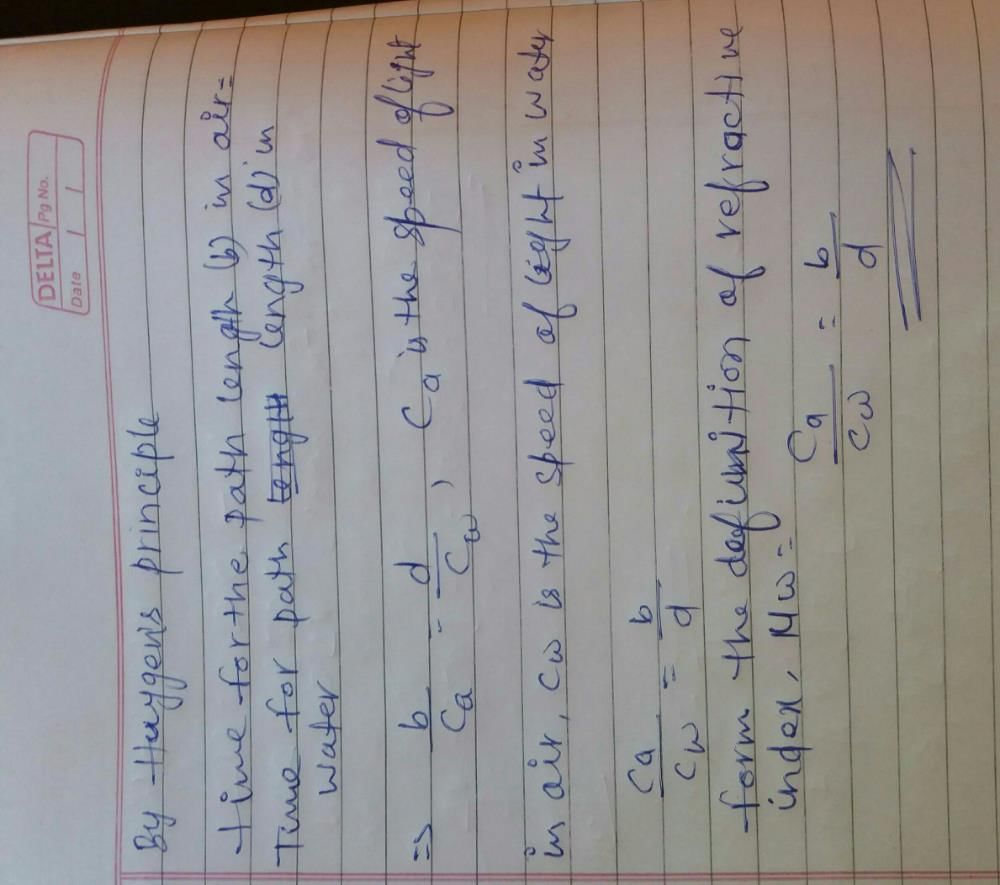 DELTA Pg No.
Date / /
By Huygen's principle
time for the path length (b) in air =
Time for path length (d) in
water
=> b/Ca = d/Cw, Ca is the speed of light
in air, Cw is the speed of light in water
Ca/Cw = b/d
form the definition of refractive
index, Mw =
Ca/Cw = b/d